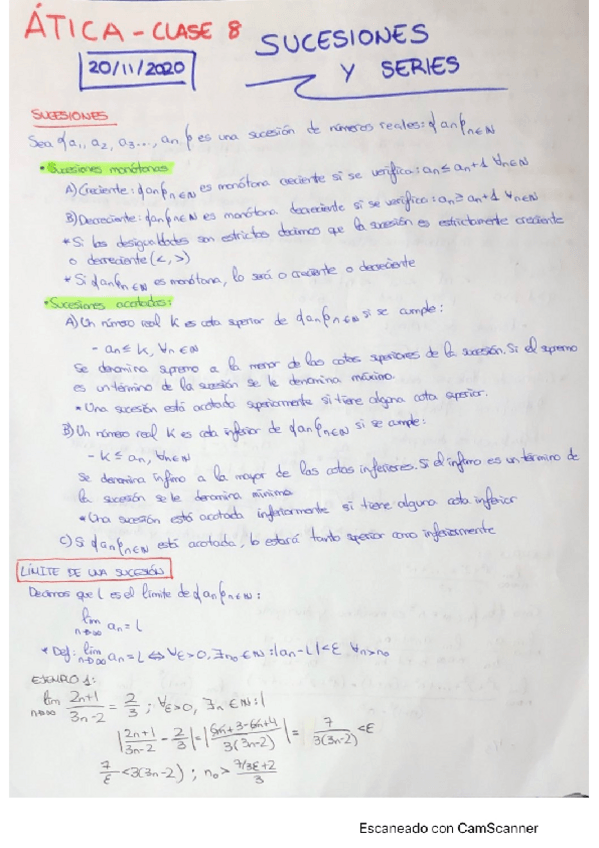 ÁTICA - CLASE 8
20/11/2020
SUCESIONES
Y SERIES
SUCESIONES
Sea {a₁, a₂, a₃..., an} es una sucesión de números reales: {an}n∈ℕ
• Sucesiones monótonas
A) Creciente: {an}n∈ℕ es monótona creciente si se verifica: an ≤ an+1 ∀n∈ℕ
B) Decreciente: {an}n∈ℕ es monótona decreciente si se verifica: an ≥ an+1 ∀n∈ℕ
* Si las desigualdades son estrictas decimos que la sucesión es estrictamente creciente
o decreciente (<, >)
* Si {an}n∈ℕ es monótona, lo será o creciente o decreciente
• Sucesiones acotadas:
A) Un número real K es cota superior de {an}n∈ℕ si se cumple:
- an ≤ K, ∀n∈ℕ
Se denomina supremo a la menor de las cotas superiores de la sucesión. Si el supremo
es un término de la sucesión se le denomina máximo.
* Una sucesión está acotada superiormente si tiene alguna cota superior.
B) Un número real K es cota inferior de {an}n∈ℕ si se cumple:
- K ≤ an, ∀n∈ℕ
Se denomina ínfimo a la mayor de las cotas inferiores. Si el ínfimo es un término de
la sucesión se le denomina mínimo
* Una sucesión está acotada inferiormente si tiene alguna cota inferior
C) Si {an}n∈ℕ está acotada, lo estará tanto superior como inferiormente
LÍMITE DE UNA SUCESIÓN
Decimos que L es el límite de {an}n∈ℕ:
lim n→∞ an = L
* Def: lim n→∞ an = L ⇔ ∀ε>0, ∃n₀∈ℕ: |an - L| < ε ∀n>n₀
EJEMPLO 1:
lim n→∞ 2n+1/3n-2 = 2/3; ∀ε>0, ∃n∈ℕ: |
|2n+1/3n-2 - 2/3| = |6n+3-6n+4/3(3n-2)| = 7/3(3n-2) < ε
7/ε < 3(3n-2); n₀ > 7/3ε+2/3
Escaneado con CamScanner